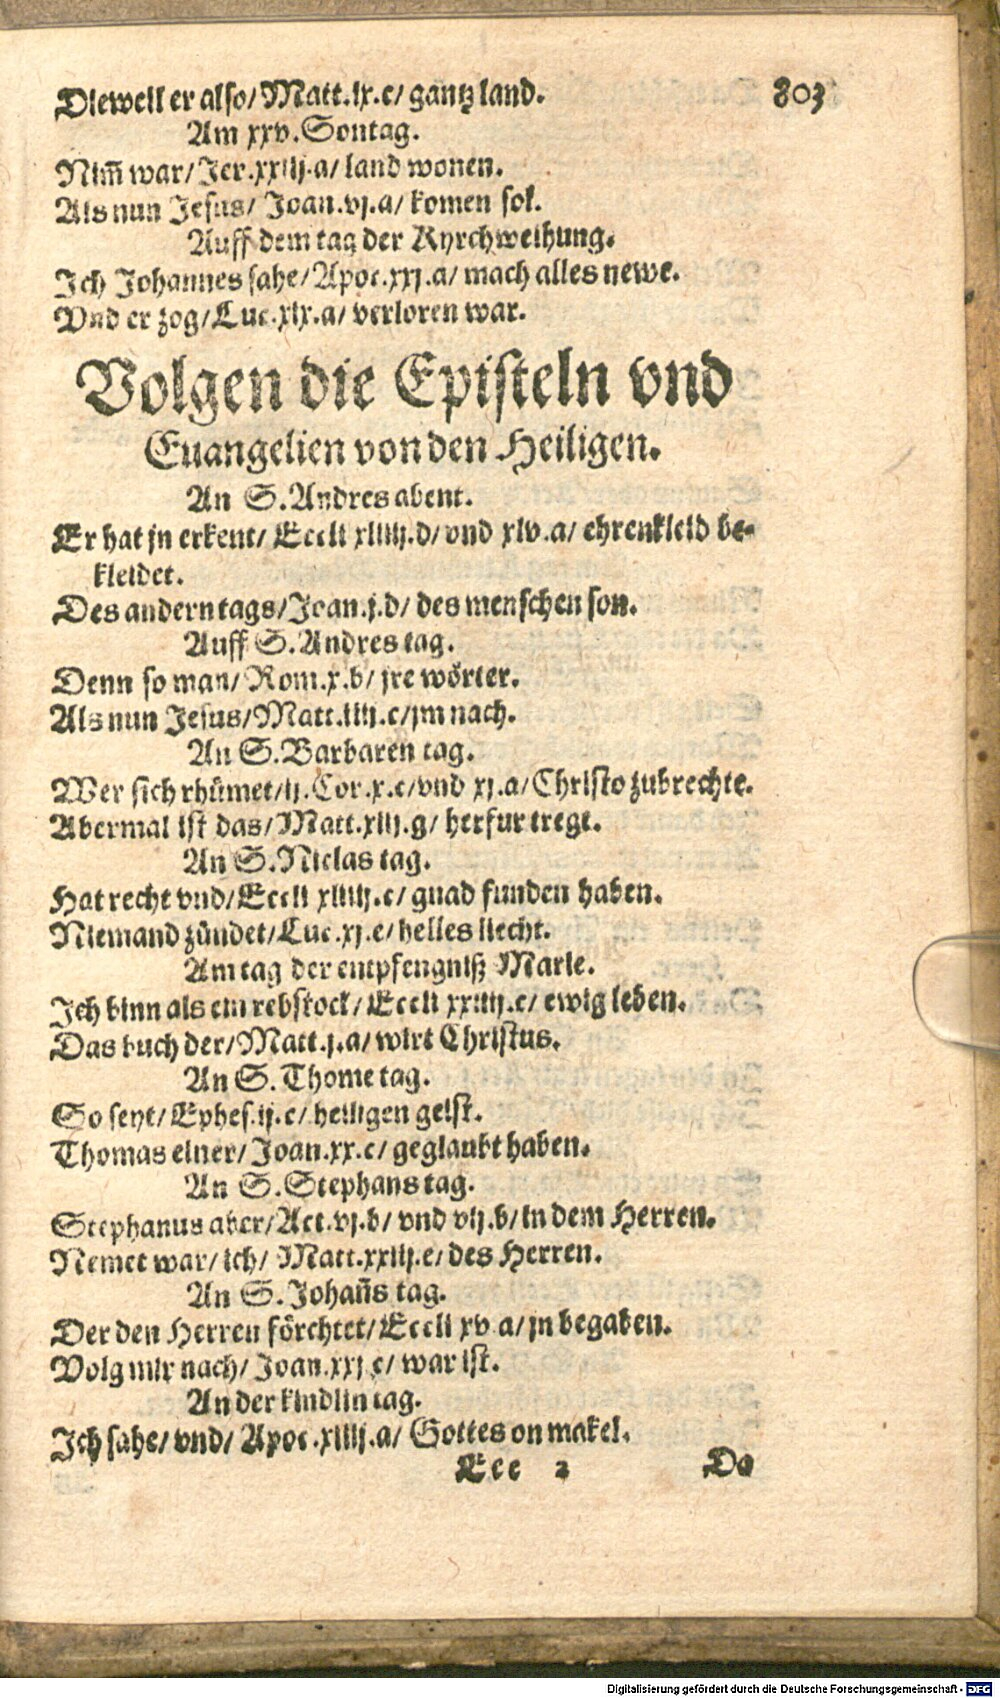 Dieweil er also/ Matt.ix.c/ gantz land.
803
Am xxv. Sontag.
Nim̃ war/ Jer.xxiij.a/ land wonen.
Als nun Jesus/ Joan.vj.a/ komen sol.
Auff dem tag der Kyrchweihung.
Ich Johannes sahe/ Apoc.xxj.a/ mach alles newe.
Vnd er zog/ Luc.xix.a/ verloren war.
Volgen die Episteln vnd
Euangelien von den Heiligen.
An S. Andres abent.
Er hat jn erkent/ Eccli xliiij.d/ vnd xlv.a/ ehrenkleid be-
kleidet.
Des andern tags/ Joan.j.d/ des menschen son.
Auff S. Andres tag.
Denn so man/ Rom.x.b/ jre wörter.
Als nun Jesus/ Matt.iiij.c/ jm nach.
An S. Barbaren tag.
Wer sich rhümet/ ij. Cor.x.c/ vnd xj.a/ Christo zubrechte.
Abermal ist das/ Matt.xiij.g/ herfur tregt.
An S. Niclas tag.
Hat recht vnd/ Eccli xliiij.c/ gnad funden haben.
Niemand zündet/ Luc.xj.e/ helles liecht.
Am tag der empfengniß Marie.
Ich binn als ein rebstock/ Eccli xxiiij.c/ ewig leben.
Das buch der/ Matt.j.a/ wirt Christus.
An S. Thome tag.
So seyt/ Ephes.ij.c/ heiligen geist.
Thomas einer/ Joan.xx.c/ geglaubt haben.
An S. Stephans tag.
Stephanus aber/ Act.vj.b/ vnd vij.b/ in dem Herren.
Nemet war/ ich/ Matt.xxiij.e/ des Herren.
An S. Johañs tag.
Der den Herren förchtet/ Eccli xv a/ jn begaben.
Volg mir nach/ Joan.xxj c/ war ist.
An der kindlin tag.
Ich sahe/ vnd/ Apoc.xiiij.a/ Gottes on makel.
Eee 2 Da
Digitalisierung gefördert durch die Deutsche Forschungsgemeinschaft - DFG